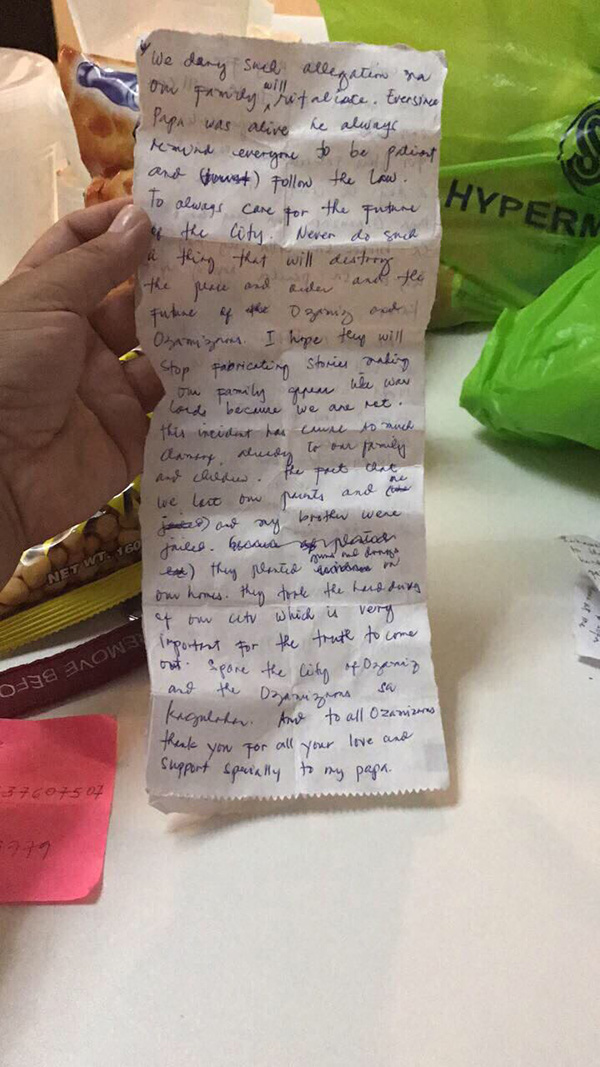 We deny such allegation na
our family will ritaliate. Eversince
Papa was alive he always
remind everyone to be patient
and follow the law.
To always care for the future
of the City. Never do such
a thing that will destroy
the peace and order and the
future of the Ozamiz and
Ozamiznons. I hope they will
stop fabricating stories making
our family appear like war
lords because we are not.
this incident has cause so much
damage already to our family
and children. The fact that
we lost our parents and me
and my brother were
jailed.
they planted guns and drugs on
our homes. they took the hard drives
of our cctv which is very
important for the truth to come
out. Spare the City of Ozamiz
and the Ozamiznons sa
kaguluhan. And to all Ozamiznons
thank you for all your love and
support specially to my papa.
HYPERM
NET WT. 160
REMOVE BEFO
37607507
779